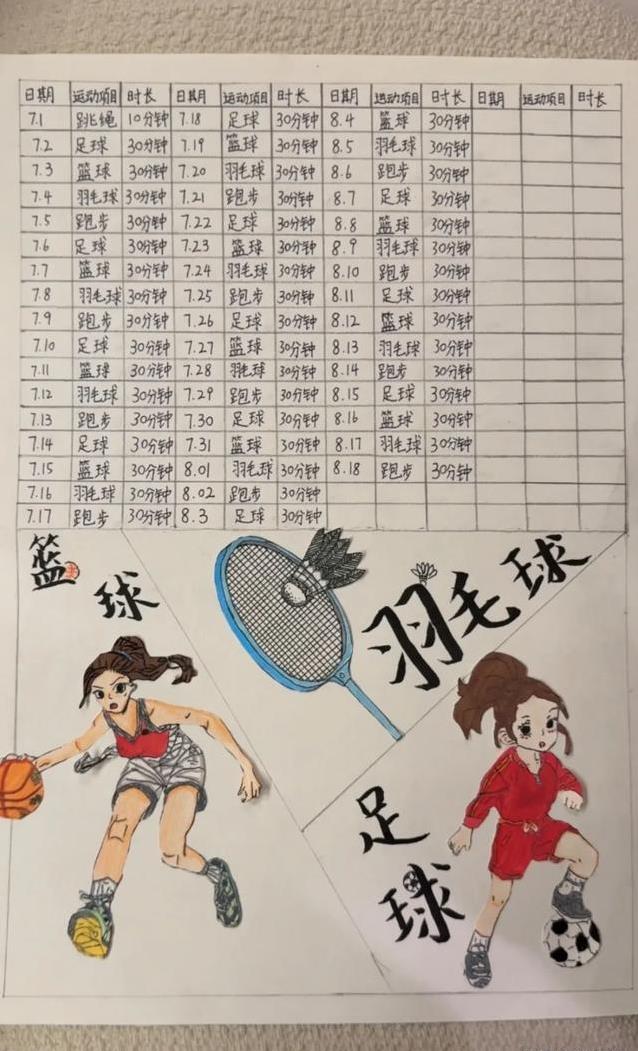 日期 运动项目 时长 日期 运动项目 时长 日期 运动项目 时长 日期 运动项目 时长
7.1 跳绳 10分钟 7.18 足球 30分钟 8.4 篮球 30分钟
7.2 足球 30分钟 7.19 篮球 30分钟 8.5 羽毛球 30分钟
7.3 篮球 30分钟 7.20 羽毛球 30分钟 8.6 跑步 30分钟
7.4 羽毛球 30分钟 7.21 跑步 30分钟 8.7 足球 30分钟
7.5 跑步 30分钟 7.22 足球 30分钟 8.8 篮球 30分钟
7.6 足球 30分钟 7.23 篮球 30分钟 8.9 羽毛球 30分钟
7.7 篮球 30分钟 7.24 羽毛球 30分钟 8.10 跑步 30分钟
7.8 羽毛球 30分钟 7.25 跑步 30分钟 8.11 足球 30分钟
7.9 跑步 30分钟 7.26 足球 30分钟 8.12 篮球 30分钟
7.10 足球 30分钟 7.27 篮球 30分钟 8.13 羽毛球 30分钟
7.11 篮球 30分钟 7.28 羽毛球 30分钟 8.14 跑步 30分钟
7.12 羽毛球 30分钟 7.29 跑步 30分钟 8.15 足球 30分钟
7.13 跑步 30分钟 7.30 足球 30分钟 8.16 篮球 30分钟
7.14 足球 30分钟 7.31 篮球 30分钟 8.17 羽毛球 30分钟
7.15 篮球 30分钟 8.01 羽毛球 30分钟 8.18 跑步 30分钟
7.16 羽毛球 30分钟 8.02 跑步 30分钟
7.17 跑步 30分钟 8.3 足球 30分钟
篮球
羽毛球
足球